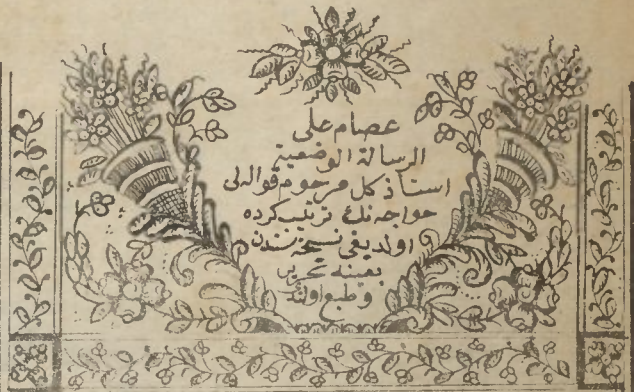 عصام على
الرسالة الوضعية
استاذ كل مرحوم قواله لى
خواجه نك ترتيب كرده
اولديغى نسخه سندن
بعينه تحرير
وطبع اولندى